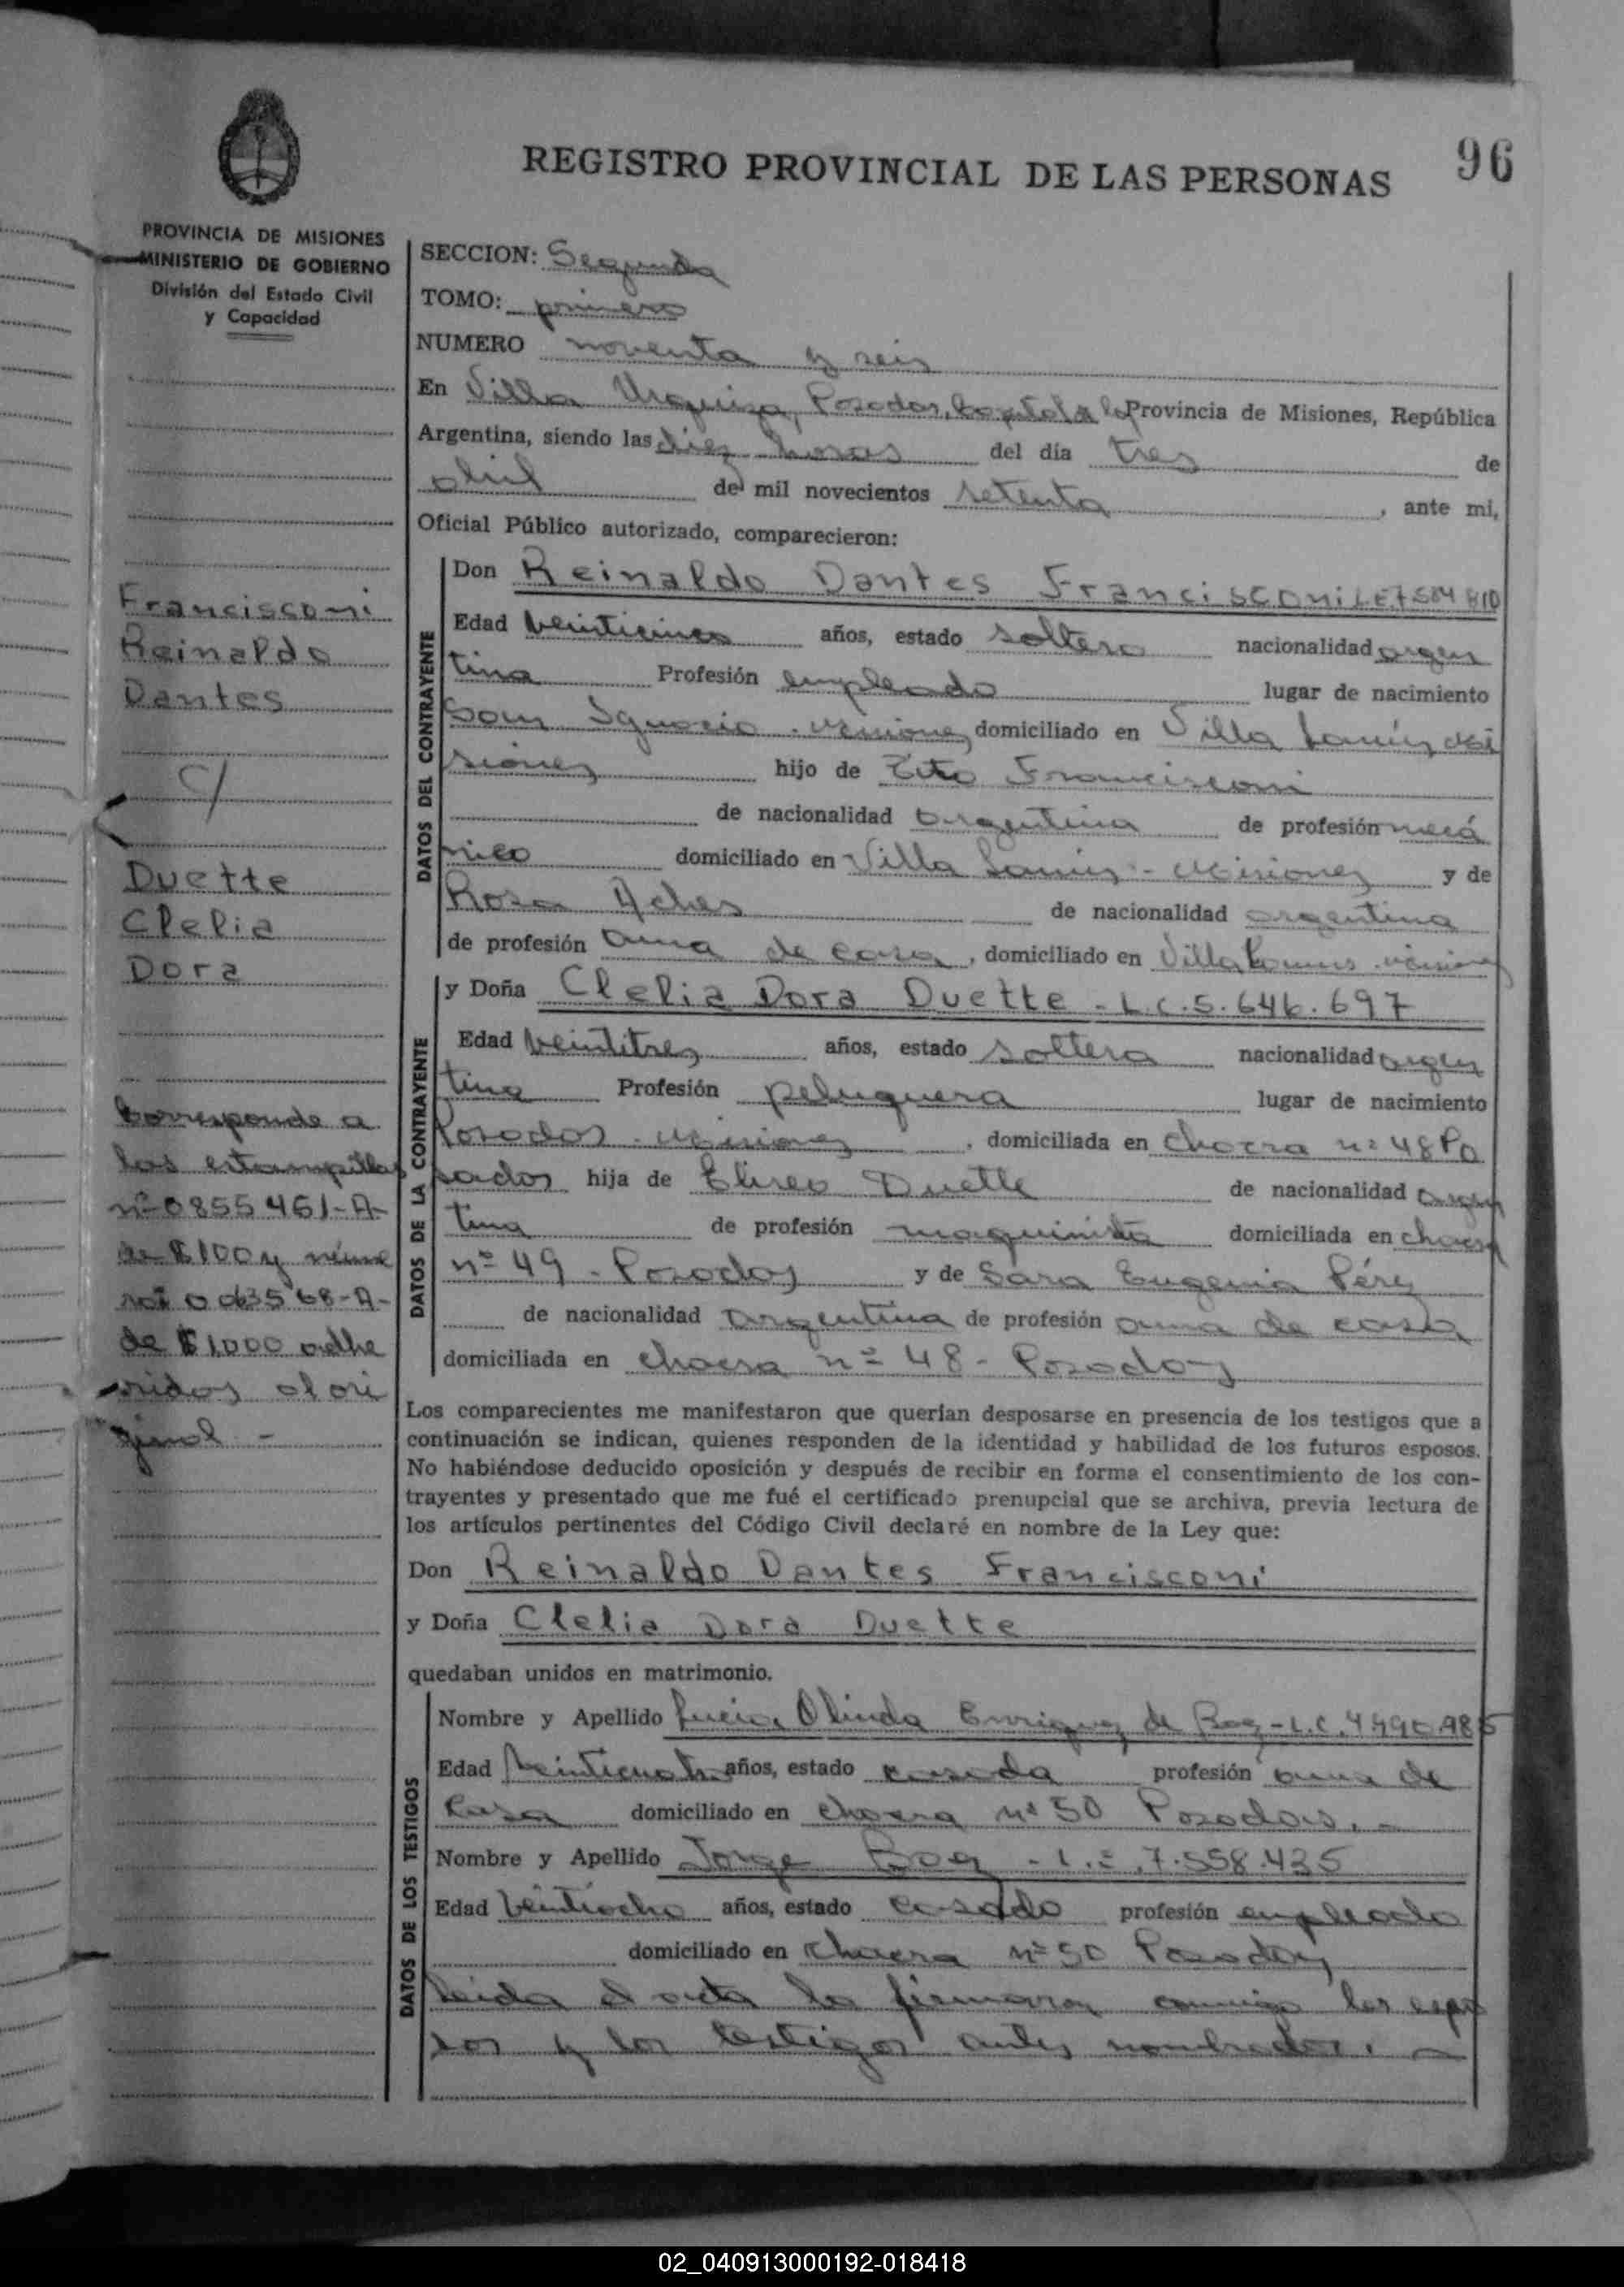 96
REGISTRO PROVINCIAL DE LAS PERSONAS
PROVINCIA DE MISIONES
MINISTERIO DE GOBIERNO
División del Estado Civil
y Capacidad
Francisconi
Reinaldo
Dantes
c/
Duette
Clelia
Dora
Corresponde a
las estampillas
nº 0855461-A-
de $100 y núme
de $1.000 adhe
ridos al ori
ginal -
SECCION: Segunda
TOMO: primero
NUMERO noventa y seis
En Villa Urquiza, Posadas, Capital de la Provincia de Misiones, República
Argentina, siendo las diez horas del día tres de
abril de mil novecientos setenta, ante mi,
Oficial Público autorizado, comparecieron:
DATOS DEL CONTRAYENTE
Don Reinaldo Dantes Francisconi L.E. 7.584.810
Edad veinticinco años, estado soltero nacionalidad argen
tina Profesión empleado lugar de nacimiento
San Ignacio - Misiones domiciliado en Villa Lanús Mi
siones hijo de Tito Francisconi
de nacionalidad argentina de profesión mecá
nico domiciliado en Villa Lanús - Misiones y de
Rosa Aches de nacionalidad argentina
de profesión ama de casa, domiciliado en Villa Lanus - Misiones
DATOS DE LA CONTRAYENTE
y Doña Clelia Dora Duette - L.C. 5.646.697
Edad veintitres años, estado soltera nacionalidad argen
tina Profesión peluquera lugar de nacimiento
Posadas - Misiones, domiciliada en chacra nº 48 Po
sadas hija de Eliseo Duette de nacionalidad argen
tina de profesión maquinista domiciliada en chacra
nº 49 - Posadas y de Sara Eugenia Pérez
de nacionalidad argentina de profesión ama de casa
domiciliada en chacra nº 48 - Posadas
Los comparecientes me manifestaron que querían desposarse en presencia de los testigos que a
continuación se indican, quienes responden de la identidad y habilidad de los futuros esposos.
No habiéndose deducido oposición y después de recibir en forma el consentimiento de los con-
trayentes y presentado que me fué el certificado prenupcial que se archiva, previa lectura de
los artículos pertinentes del Código Civil declaré en nombre de la Ley que:
Don Reinaldo Dantes Francisconi
y Doña Clelia Dora Duette
quedaban unidos en matrimonio.
DATOS DE LOS TESTIGOS
Nombre y Apellido Lucia Olinda Enriquez de - L.C. 4.490.985
Edad veinticuatro años, estado casada profesión ama de
casa domiciliado en chacra nº 50 Posadas. -
Nombre y Apellido Jorge - L.E. 7.558.435
Edad veintiocho años, estado casado profesión empleado
domiciliado en chacra nº 50 Posadas
leida el acta la firmaron conmigo los espo
sos y los testigos antes nombrados. -
02_040913000192-018418